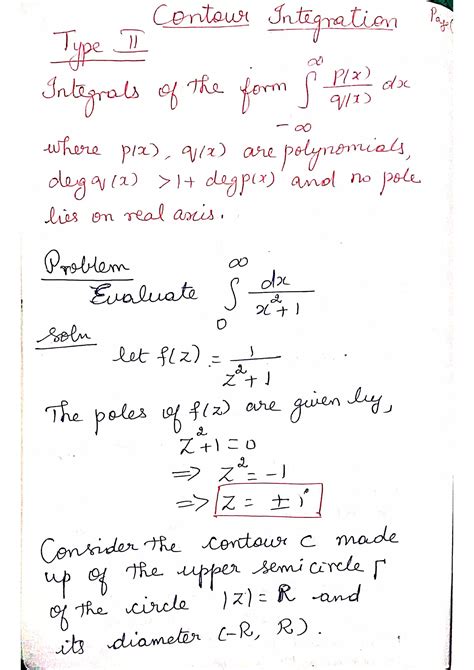 Contour Integration
Type II
Integrals of the form ∫_{-∞}^{∞} p(x)/q(x) dx
where p(x), q(x) are polynomials,
deg q(x) > 1 + deg p(x) and no pole
lies on real axis.
Problem
Evaluate ∫_0^∞ dx/(x²+1)
Soln
let f(z) = 1/(z²+1)
The poles of f(z) are given by,
z²+1=0
⇒ z²=-1
⇒ z = ±i
Consider the contour C made
up of the upper semicircle Γ
of the circle |z|=R and
its diameter (-R, R).